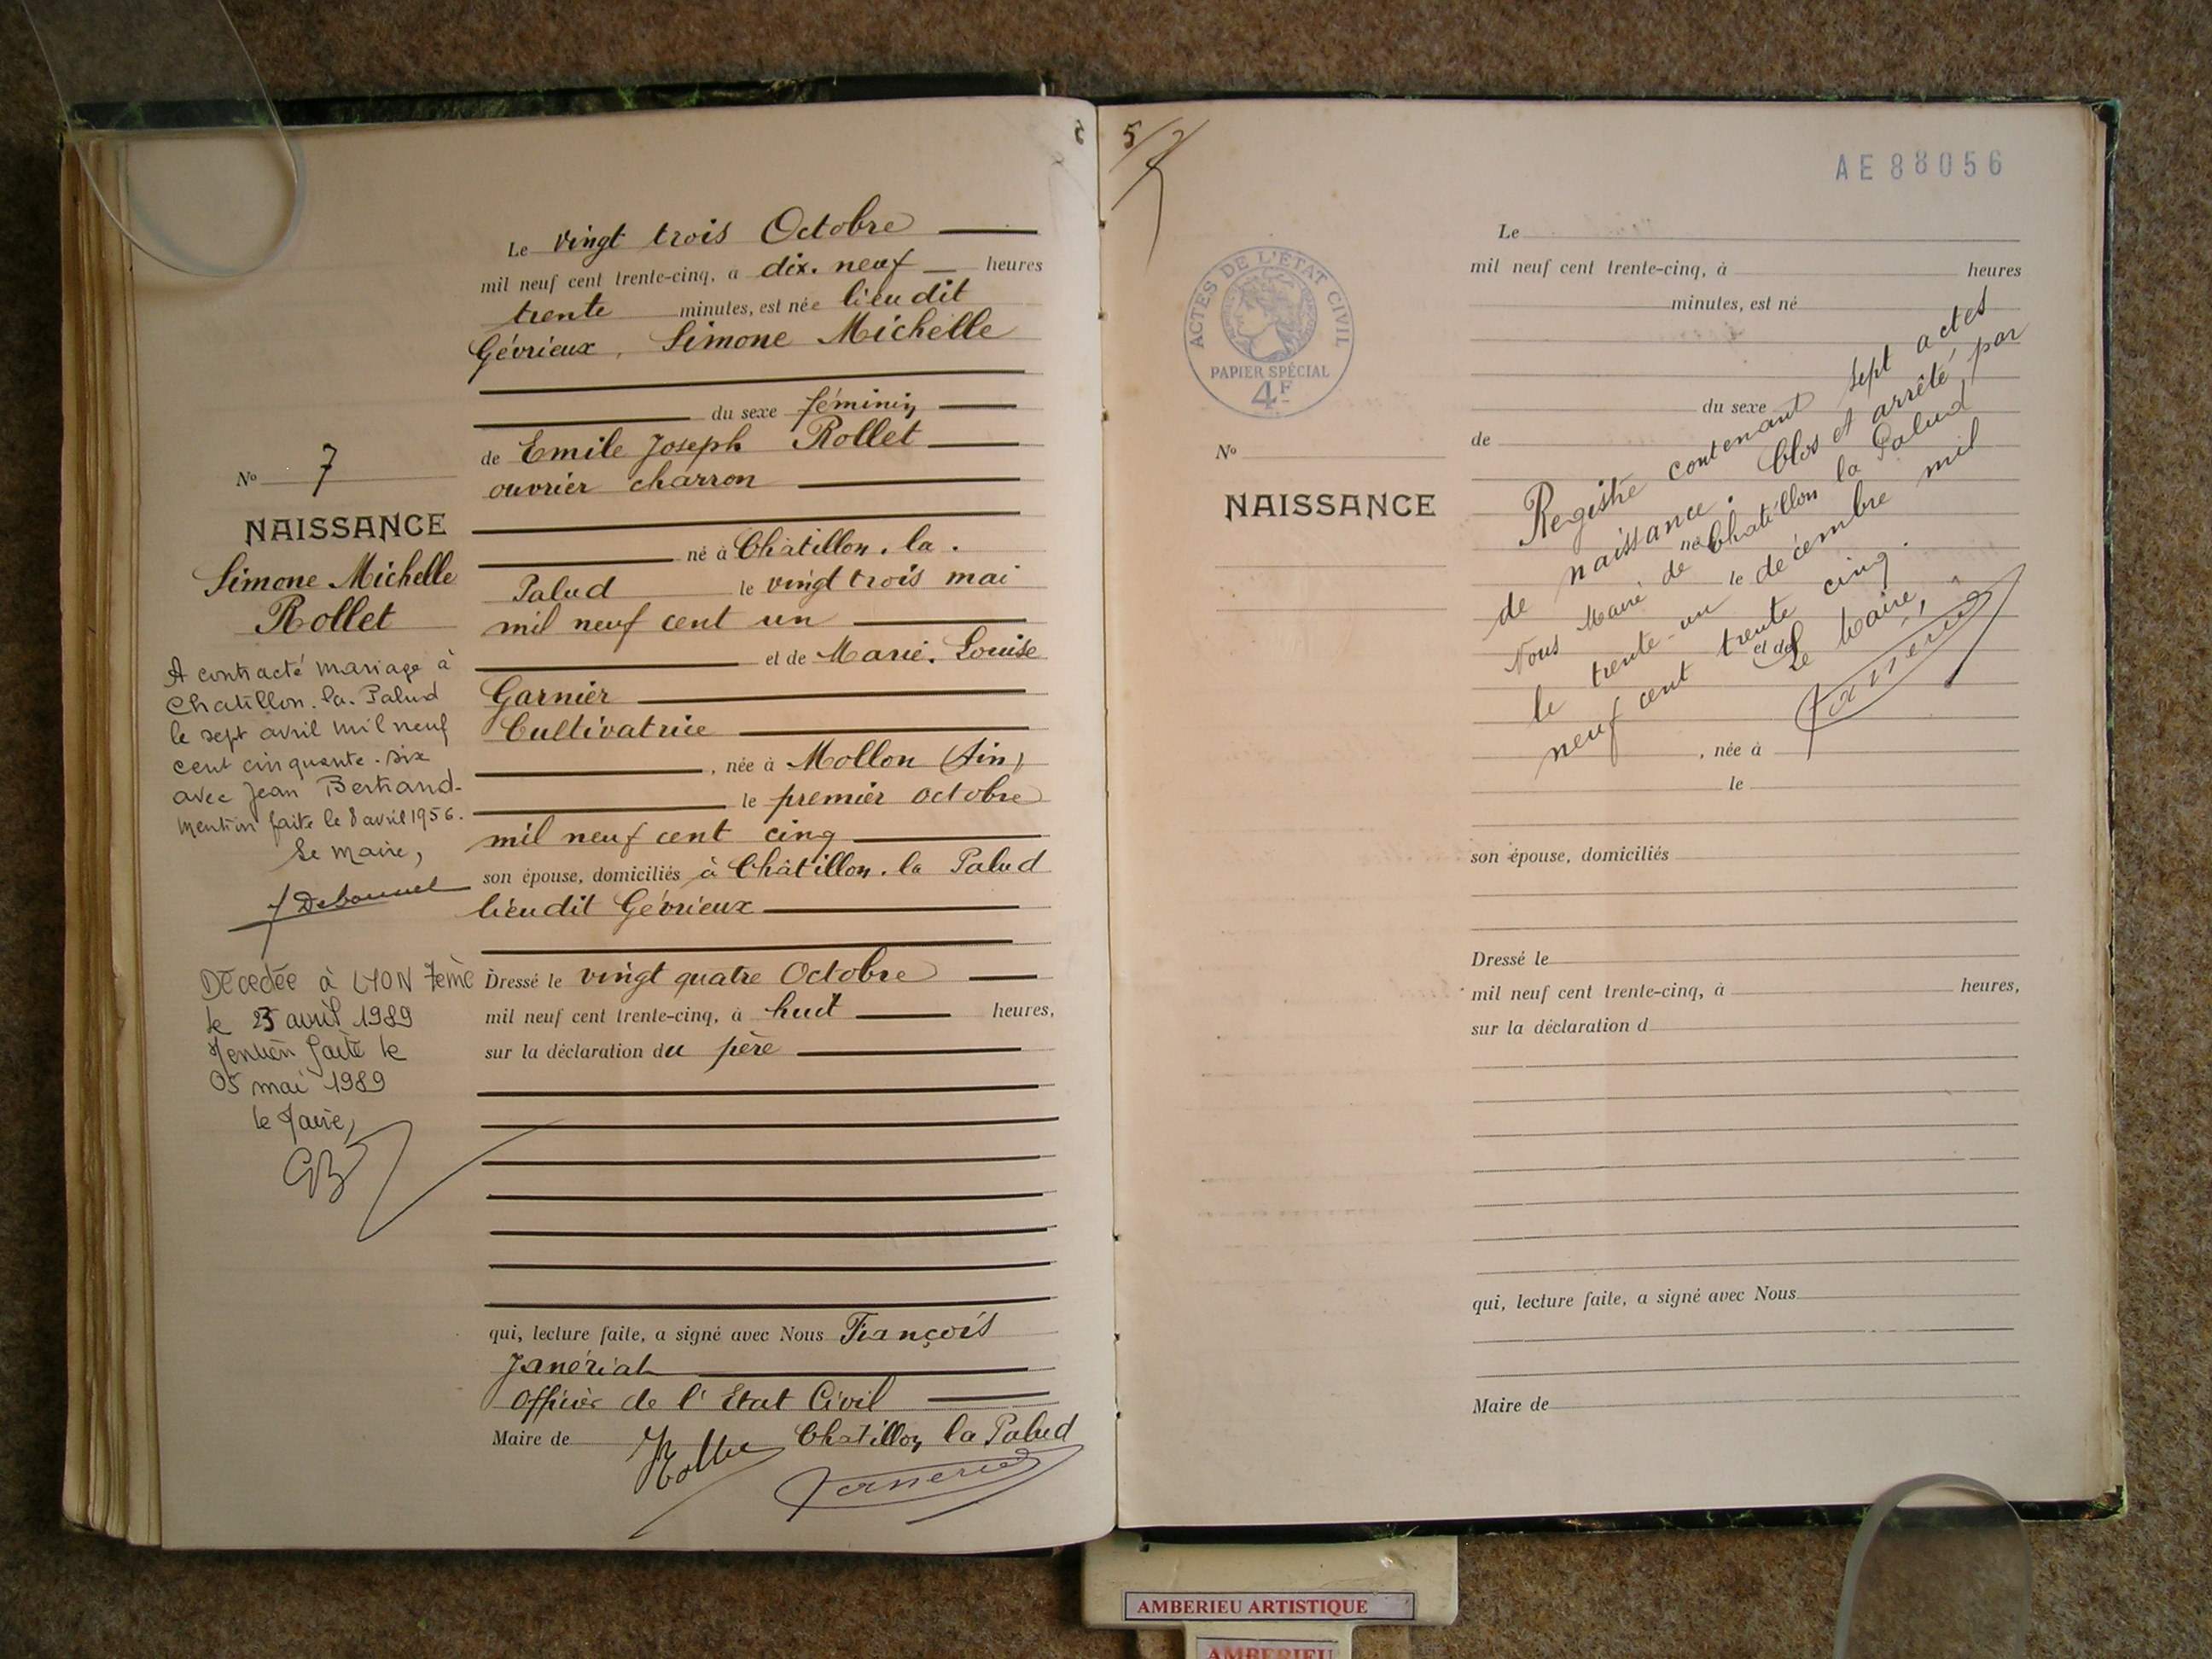 Le vingt trois Octobre
mil neuf cent trente-cinq, à dix. neuf heures
trente minutes, est née lieu dit
Gévrieux, Simone Michelle
du sexe féminin
de Emile Joseph Rollet
ouvrier charron
né à Châtillon. la.
Palud le vingt trois mai
mil neuf cent un
et de Marie. Louise
Garnier
Cultivatrice
, née à Mollon (Ain)
le premier octobre
mil neuf cent cinq
son épouse, domiciliés à Châtillon. la Palud
lieu dit Gévrieux
Dressé le vingt quatre Octobre
mil neuf cent trente-cinq, à huit heures,
sur la déclaration du père
qui, lecture faite, a signé avec Nous François
Janériat
Officier de l'Etat Civil
Maire de Chatillon la Palud
No 7
NAISSANCE
Simone Michelle
Rollet
A contracté mariage à
Chatillon. la. Palud
le sept avril mil neuf
cent cinquante. six
avec Jean Bertrand.
Mention faite le 8 avril 1956.
Le Maire,
Décédée à LYON 7ème
le 25 avril 1989
Mention faite le
05 mai 1989
le Maire,
5
AE88056
ACTES DE L'ÉTAT CIVIL
PAPIER SPÉCIAL
4F
No
NAISSANCE
Le
mil neuf cent trente-cinq, à heures
minutes, est né
du sexe
de
né à
le
et de
, née à
le
son épouse, domiciliés
Dressé le
mil neuf cent trente-cinq, à heures,
sur la déclaration d
qui, lecture faite, a signé avec Nous
Maire de
Registre contenant sept actes
de naissance. Clos et arrêté par
Nous Maire de Chatillon la Palud
le trente-un décembre mil
neuf cent trente cinq.
Le Maire,
AMBERIEU ARTISTIQUE
AMBERIEU